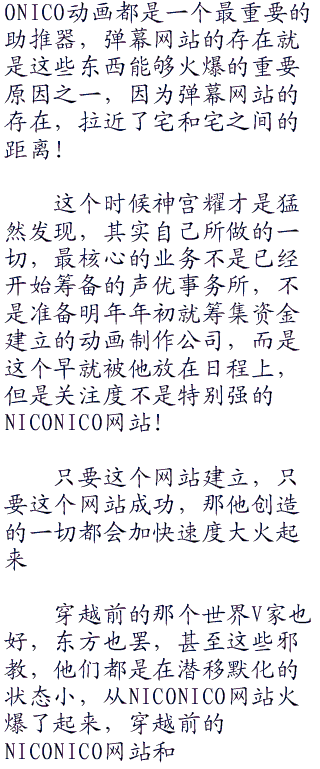 ONICO动画都是一个最重要的
助推器，弹幕网站的存在就
是这些东西能够火爆的重要
原因之一，因为弹幕网站的
存在，拉近了宅和宅之间的
距离！
这个时候神宫耀才是猛
然发现，其实自己所做的一
切，最核心的业务不是已经
开始筹备的声优事务所，不
是准备明年年初就筹集资金
建立的动画制作公司，而是
这个早就被他放在日程上，
但是关注度不是特别强的
NICONICO网站！
只要这个网站建立，只
要这个网站成功，那他创造
的一切都会加快速度大火起
来
穿越前的那个世界V家也
好，东方也罢，甚至这些邪
教，他们都是在潜移默化的
状态小，从NICONICO网站火
爆了起来，穿越前的
NICONICO网站和